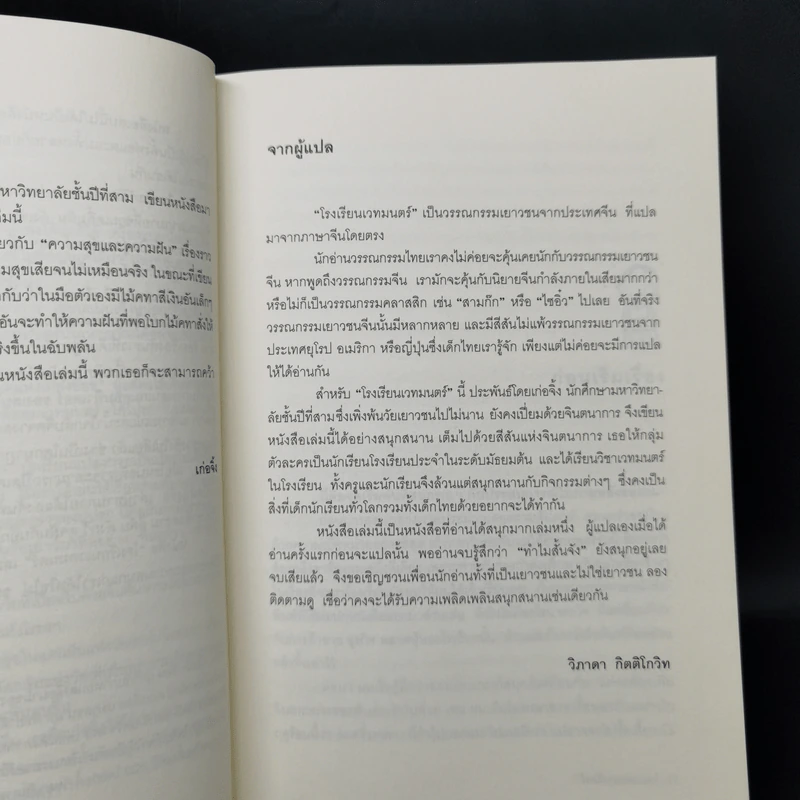 หาวิทยาลัยชั้นปีที่สาม เขียนหนังสือมา
ล่มนี้
ยวกับ “ความสุขและความฝัน” เรื่องราว
มสุขเสียจนไม่เหมือนจริง ในขณะที่เขียน
กับว่าในมือตัวเองมีไม้คทาสีเงินอันเล็กๆ
อันจะทำให้ความฝันที่พอโบกไม้คทาสั่งให้
ริงขึ้นในฉับพลัน
นหนังสือเล่มนี้ พวกเธอก็จะสามารถคว้า
เก่อจิ้ง
จากผู้แปล
“โรงเรียนเวทมนตร์” เป็นวรรณกรรมเยาวชนจากประเทศจีน ที่แปล
มาจากภาษาจีนโดยตรง
นักอ่านวรรณกรรมไทยเราคงไม่ค่อยจะคุ้นเคยนักกับวรรณกรรมเยาวชน
จีน หากพูดถึงวรรณกรรมจีน เรามักจะคุ้นกับนิยายจีนกำลังภายในเสียมากกว่า
หรือไม่ก็เป็นวรรณกรรมคลาสสิก เช่น “สามก๊ก” หรือ “ไซอิ๋ว” ไปเลย อันที่จริง
วรรณกรรมเยาวชนจีนนั้นมีหลากหลาย และมีสีสันไม่แพ้วรรณกรรมเยาวชนจาก
ประเทศยุโรป อเมริกา หรือญี่ปุ่นซึ่งเด็กไทยเรารู้จัก เพียงแต่ไม่ค่อยจะมีการแปล
ให้ได้อ่านกัน
สำหรับ “โรงเรียนเวทมนตร์” นี้ ประพันธ์โดยเก่อจิ้ง นักศึกษามหาวิทยา-
ลัยชั้นปีที่สามซึ่งเพิ่งพ้นวัยเยาวชนไปไม่นาน ยังคงเปี่ยมด้วยจินตนาการ จึงเขียน
หนังสือเล่มนี้ได้อย่างสนุกสนาน เต็มไปด้วยสีสันแห่งจินตนาการ เธอให้กลุ่ม
ตัวละครเป็นนักเรียนโรงเรียนประจำในระดับมัธยมต้น และได้เรียนวิชาเวทมนตร์
ในโรงเรียน ทั้งครูและนักเรียนจึงล้วนแต่สนุกสนานกับกิจกรรมต่างๆ ซึ่งคงเป็น
สิ่งที่เด็กนักเรียนทั่วโลกรวมทั้งเด็กไทยด้วยอยากจะได้ทำกัน
หนังสือเล่มนี้เป็นหนังสือที่อ่านได้สนุกมากเล่มหนึ่ง ผู้แปลเองเมื่อได้
อ่านครั้งแรกก่อนจะแปลนั้น พออ่านจบรู้สึกว่า “ทำไมสั้นจัง” ยังสนุกอยู่เลย
จบเสียแล้ว จึงขอเชิญชวนเพื่อนนักอ่านทั้งที่เป็นเยาวชนและไม่ใช่เยาวชน ลอง
ติดตามดู เชื่อว่าคงจะได้รับความเพลิดเพลินสนุกสนานเช่นเดียวกัน
วิภาดา กิตติโกวิท